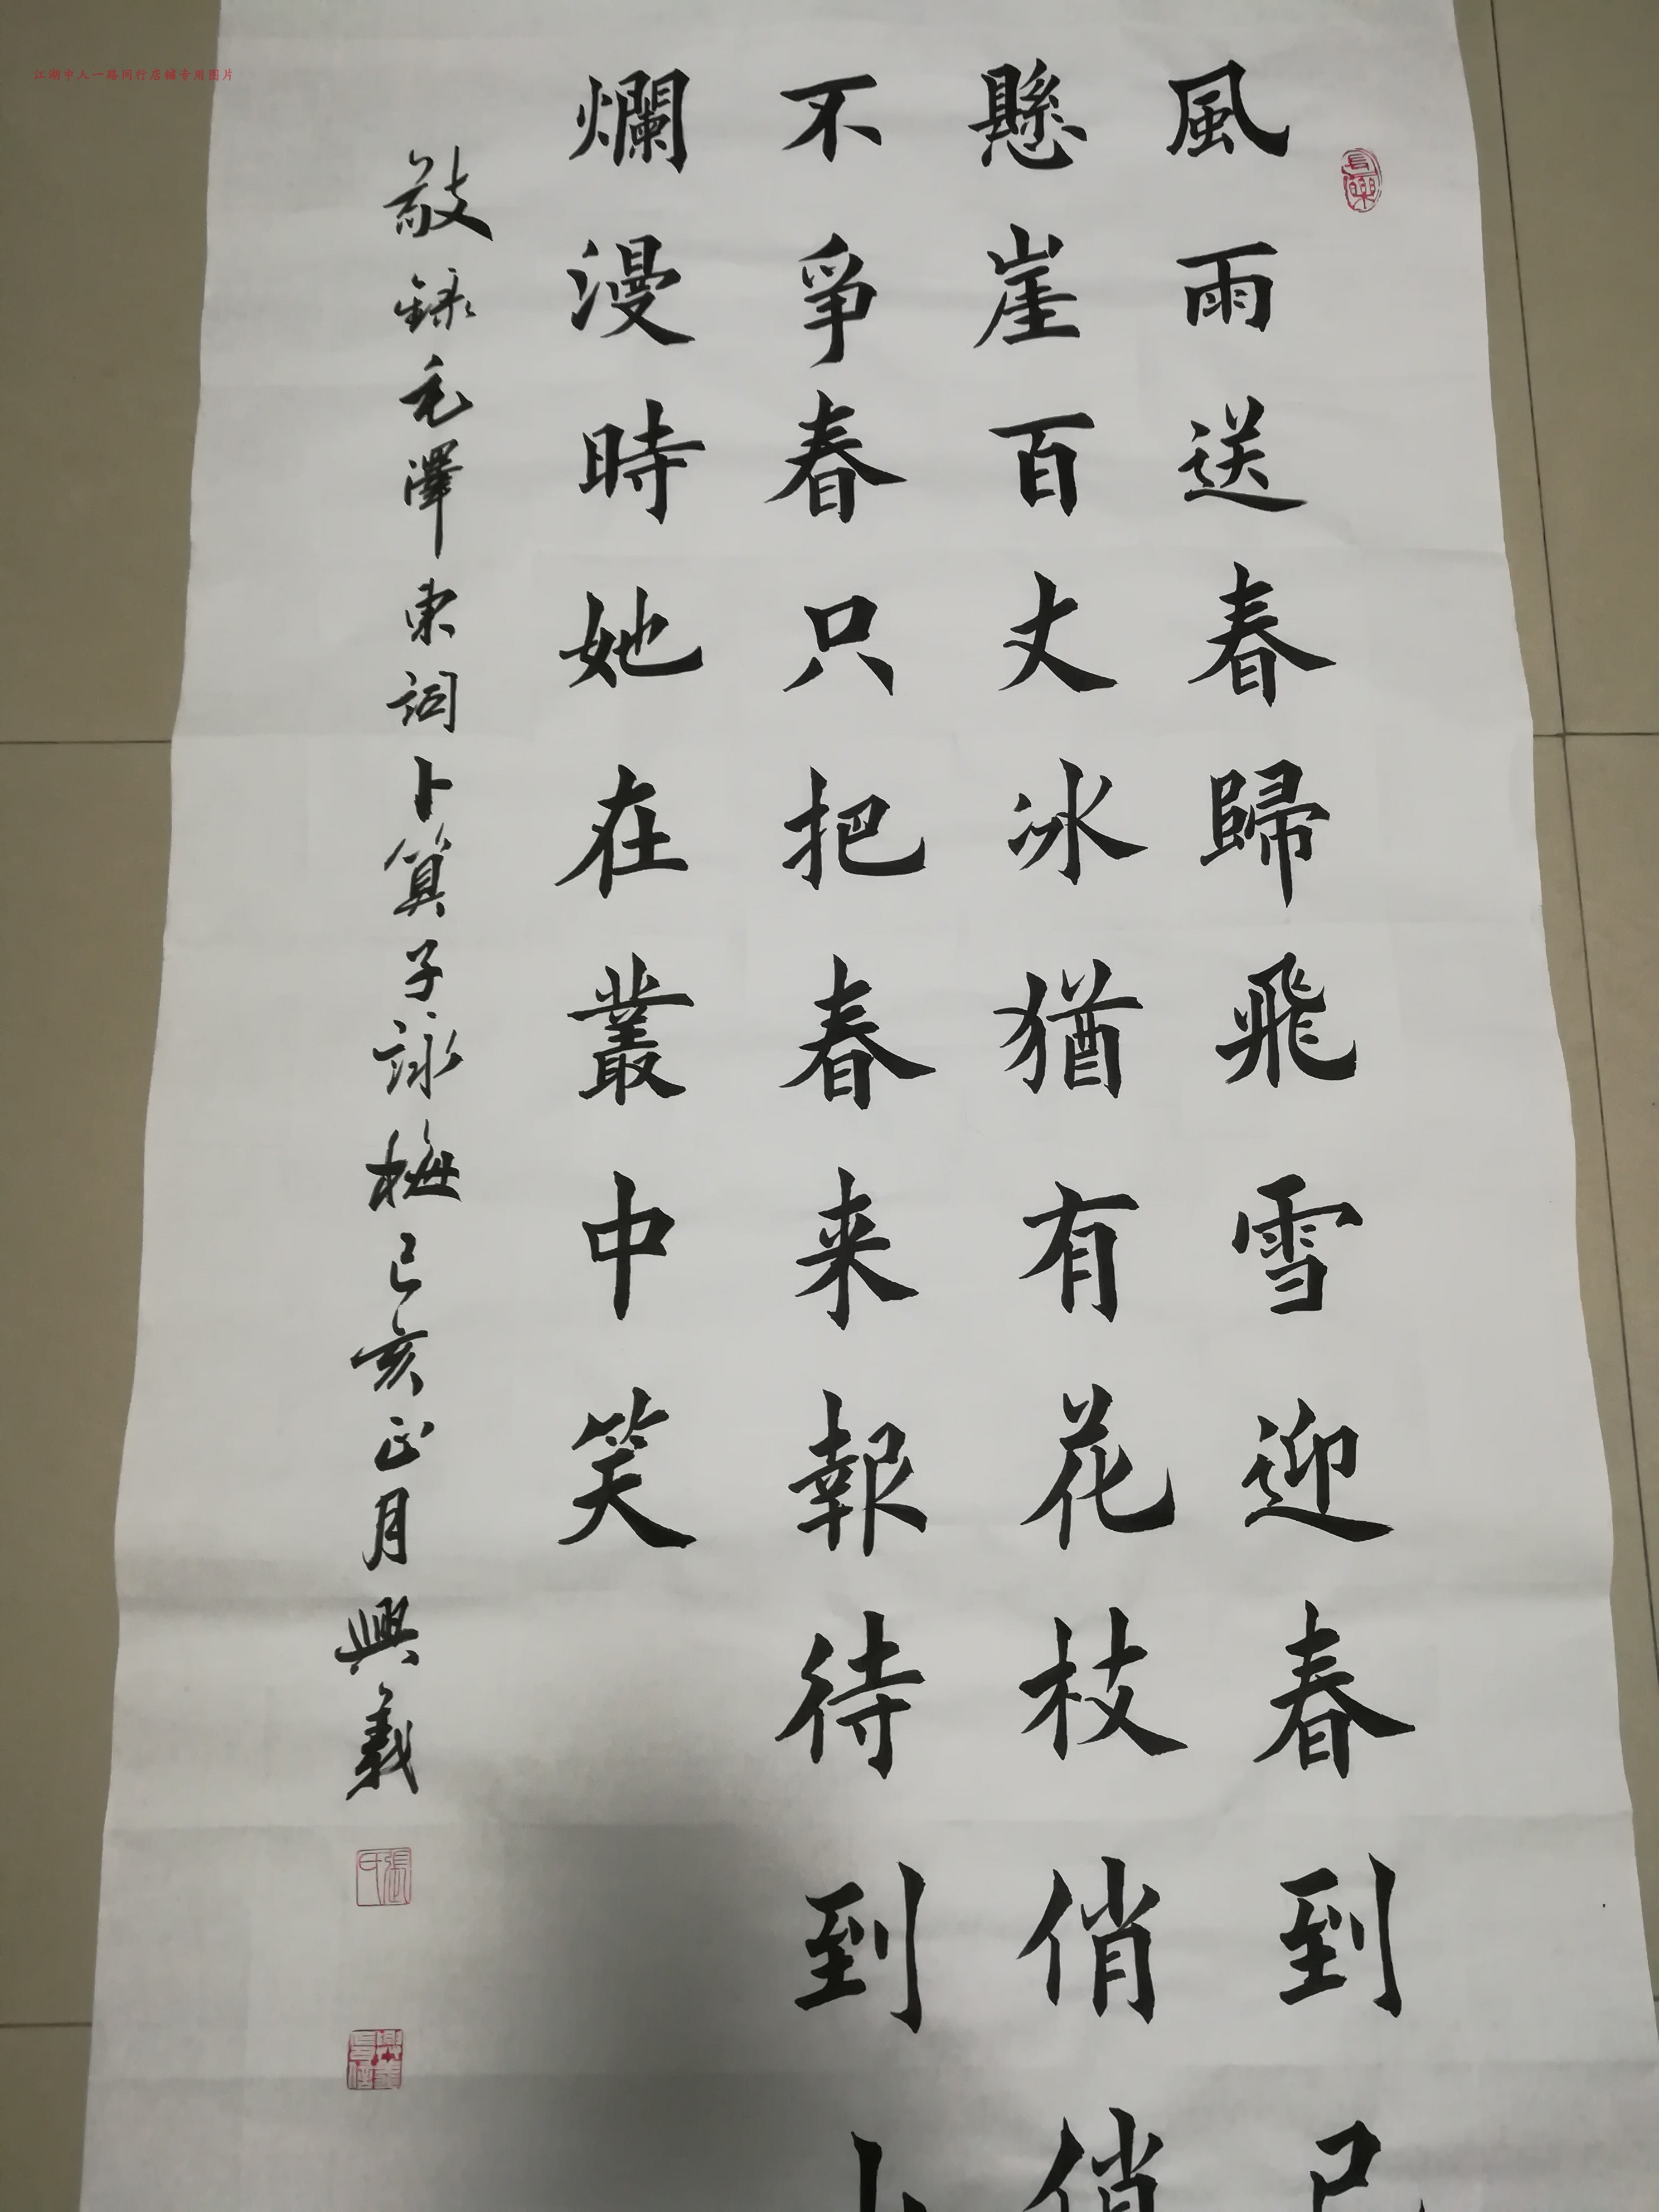 風雨送春歸飛雪迎春到已
懸崖百丈冰猶有花枝俏俏
不爭春只把春来報待到山
爛漫時她在叢中笑
敬録毛澤东詞卜算子詠梅己亥正月興義
長樂
張氏
江湖中人一路同行店铺专用图片